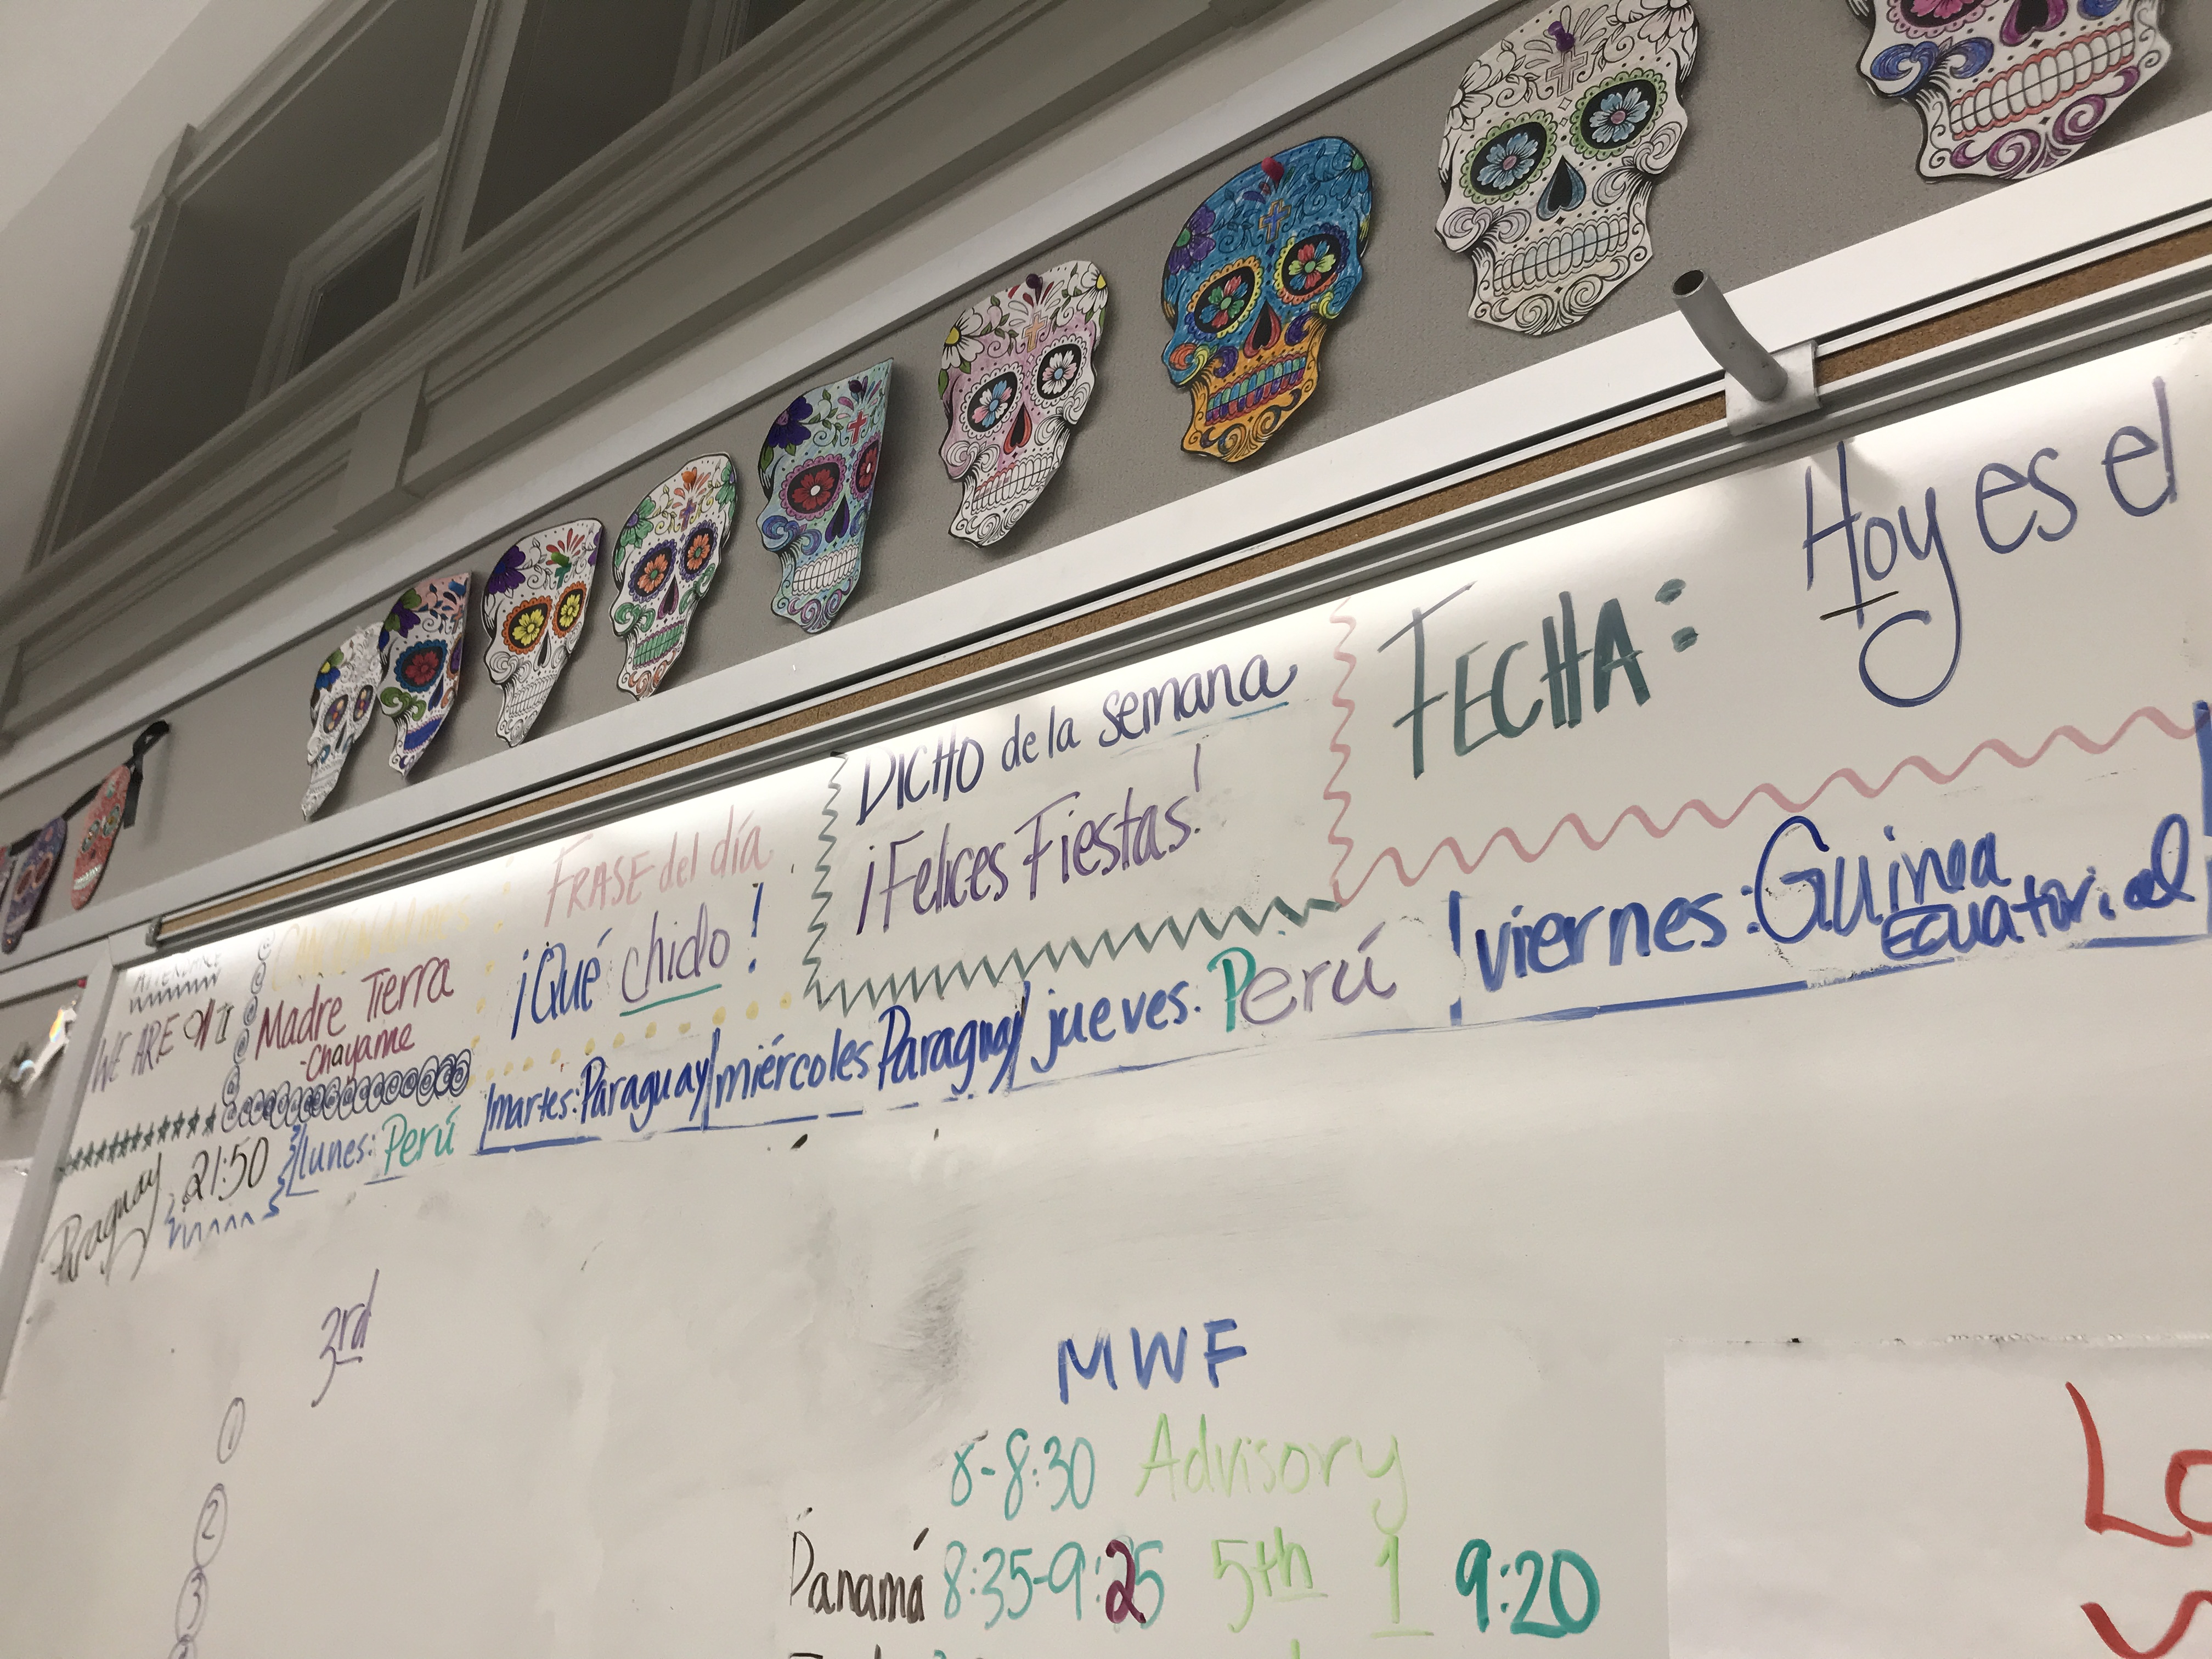 WE ARE
Madre Tierra
-Chayanne
FRASE del día
¡Qué chido!
DICHO de la semana
¡Felices Fiestas!
FECHA:
Hoy es el
Paraguay 21:50
lunes: Perú
martes: Paraguay
miércoles Paraguay
jueves: Perú
viernes: Guinea
Ecuatorial
3rd
1
2
3
MWF
8-8:30 Advisory
Panamá 8:35-9:25 5th 1 9:20